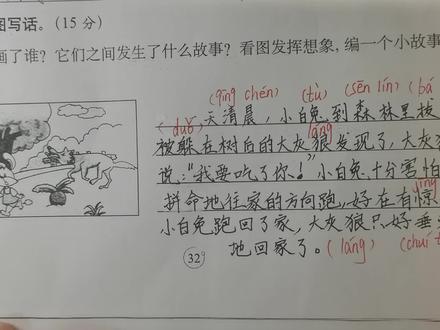 图写话。(15 分)
画了谁？它们之间发生了什么故事？看图发挥想象，编一个小故事
(qīng chén) (tù) (sēn lín) (bá
天清晨，小白兔到森林里拔
(duǒ) láng
被躲在树后的大灰狼发现了，大灰狼
说："我要吃了你！"小白兔十分害怕
jīng
拼命地往家的方向跑，好在有惊
小白兔跑回了家，大灰狼只好垂
地回家了。(láng) (chuí t
32